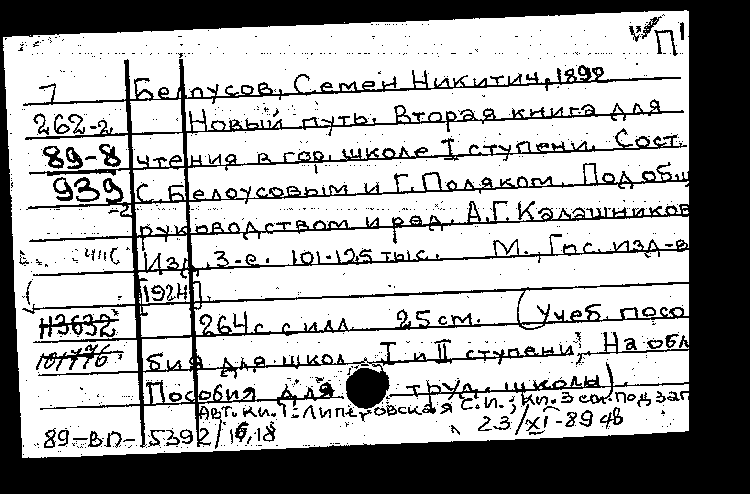 П
7 Белоусов, Семен Никитич, 1892
262-2 Новый путь. Вторая книга для
89-8 чтения в гор. школе I ступени. Сост.
939 С. Белоусовым и Г. Поляком. Под общ
-2 руководством и ред. А.Г. Калашников
Изд. 3-е. 101-125 тыс. М., Гос. изд-в
[1924].
Н3632 264 с. с илл. 25 см. (Учеб. посо
101776 бия для школ I и II ступени, На обл
Пособия для труд. школы).
Авт. кн. 1: Липеровская С.И.; кн. 3 сост. под заг
89-ВП-15392/16,18 23/XI-89